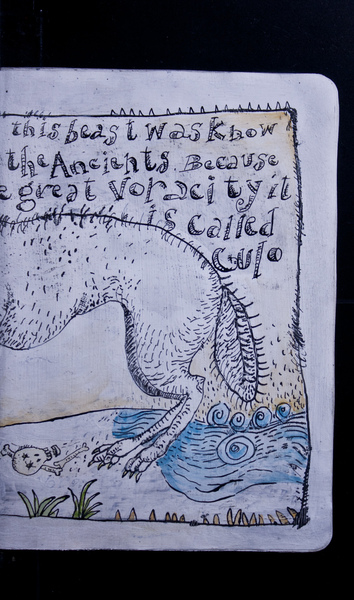 this beast was Know
the Ancients Because
great voracity it
is called
Gulo